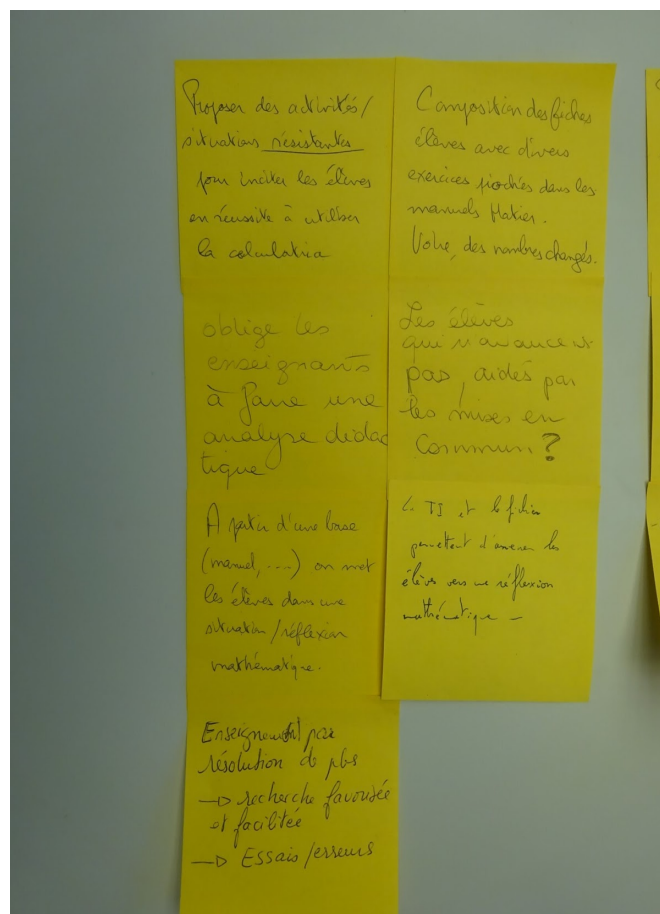 Proposer des activités/
situations résistantes
pour inciter les élèves
en réussite à utiliser
la calculatrice
oblige les
enseignants
à faire une
analyse didac
tique
A partir d'une base
(manuel, ....) on met
les élèves dans une
situation/réflexion
mathématique.
Enseignement par
résolution de pbs
→ recherche favorisée
et facilitée
→ Essais/erreurs
Composition des fiches
élèves avec divers
exercices piochés dans les
manuels Hatier.
Voire, des nombres changés.
Les élèves
qui n'avancent
pas, aidés par
les mises en
commun?
TI et le fichier
permettent d'amener les
élèves vers une réflexion
mathématique -